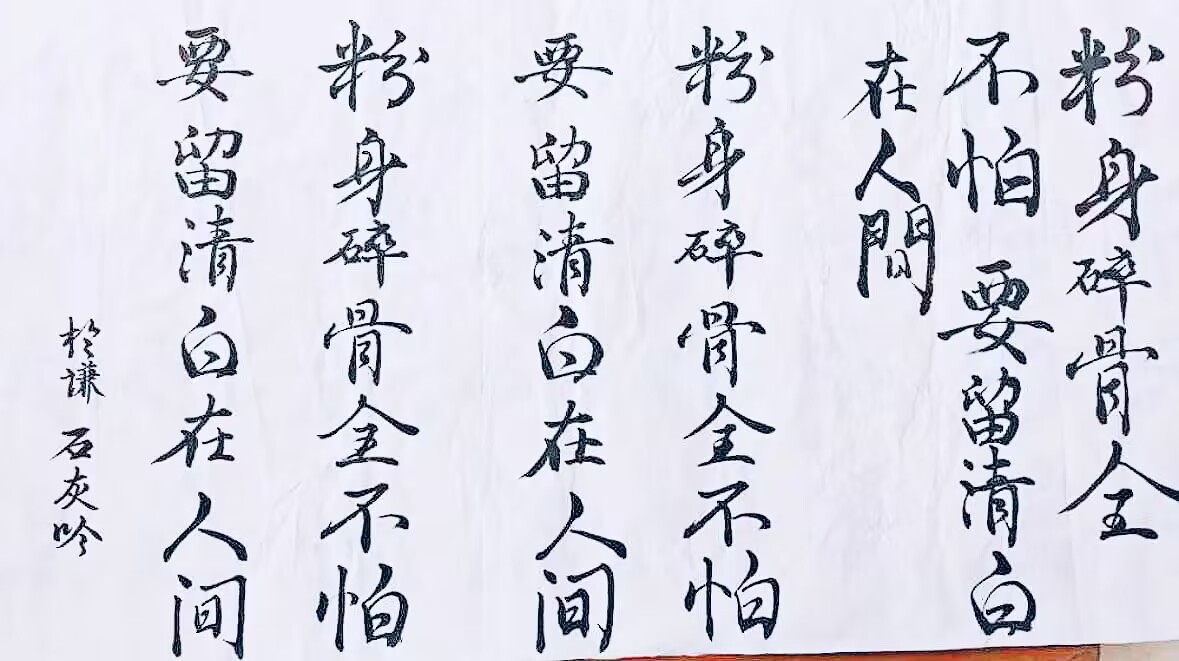 粉身碎骨全
不怕要留清白
在人間
粉身碎骨全不怕
要留清白在人间
粉身碎骨全不怕
要留清白在人间
於谦 石灰吟